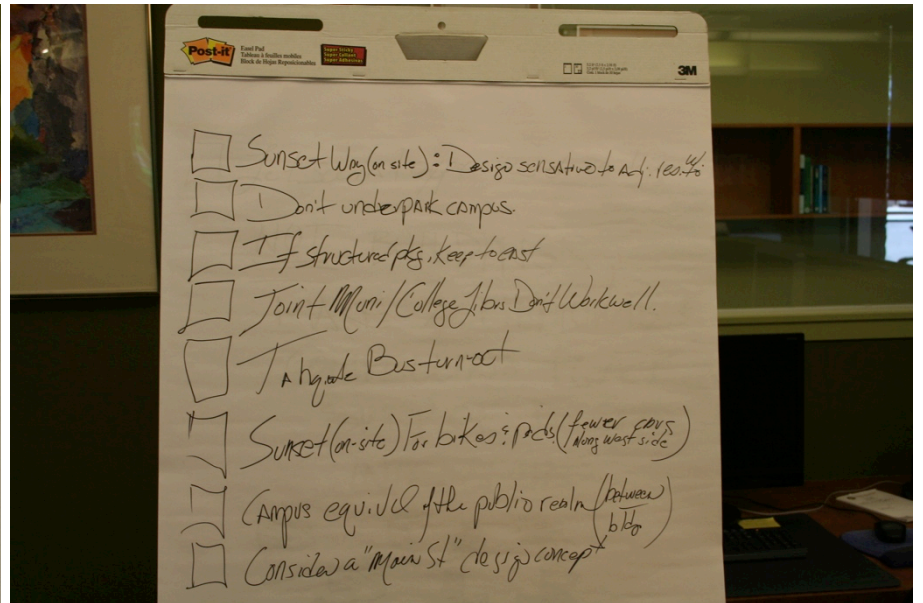 Post-it
Easel Pad
Tableau à feuilles mobiles
Block de Hojas Reposicionables
Super Sticky
3M
Sunset Way (on site): Design sensative to Adj.
Don't underpark campus.
If structured pkg, keep to east
Joint Muni/College Libs Don't Work well.
Bus turn-out
Sunset (on-site) For bikes & peds (fewer
along west side)
Campus equiv of the public realm (between
bldg)
Consider a "Main St" design concept